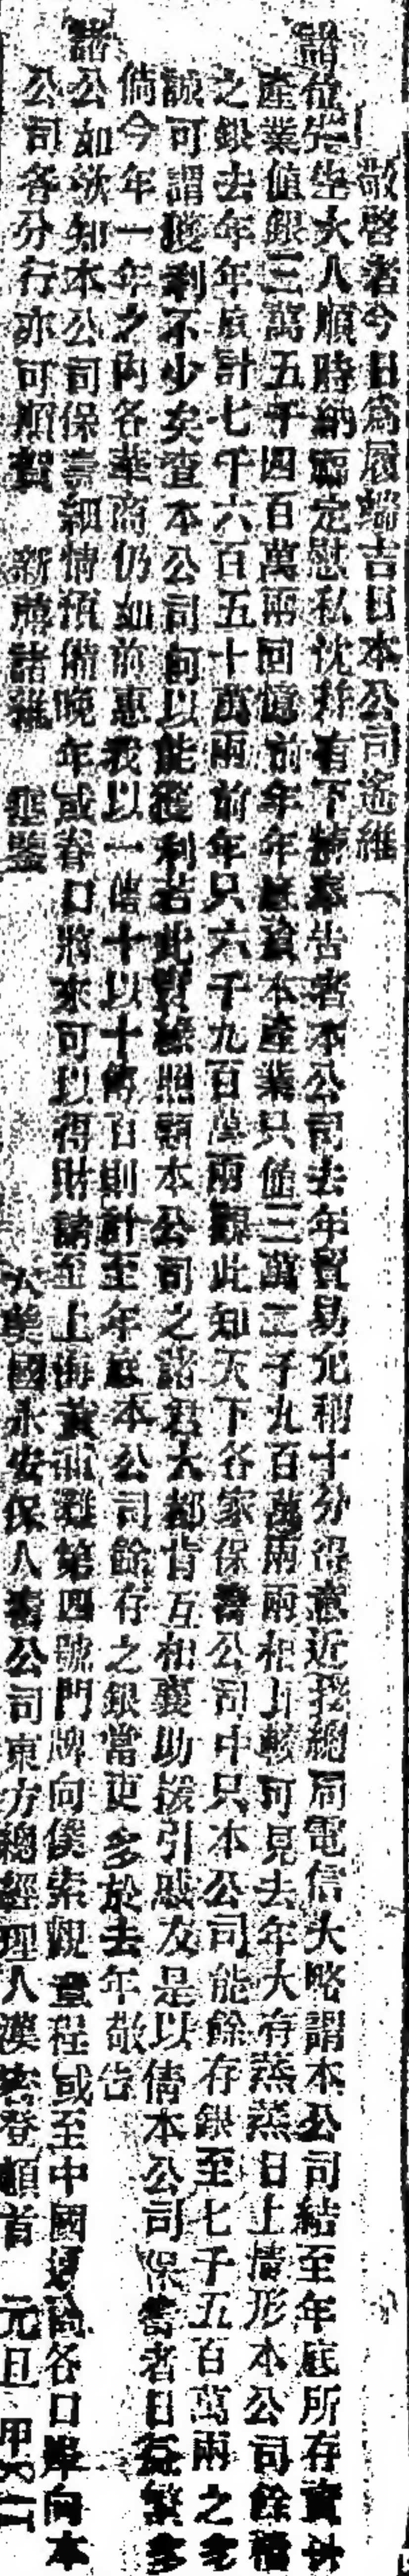 敬啓者今日爲履端吉日本公司遙維
諸位先生大人順時納福定慰私忱茲有下情奉告者本公司去年貿易允稱十分得意近接總局電信大略謂本公司結至年底所存實此
產業值銀三萬五千四百萬兩回憶前年年底資本產業只值三萬二千九百萬兩兩相比較可見去年大有蒸蒸日上情形本公司餘積
之銀去年年底計七千六百五十萬兩前年只六千九百萬兩觀此知天下各家保壽公司中只本公司能餘存銀至七千五百萬兩之多
誠可謂獲利不少矣查本公司何以能獲利若此實緣照顧本公司之諸君大都肯互相襄助援引戚友是以倩本公司保壽者日益繁多
倘今年一年之內各華商仍如前惠我以一傳十以十傳百則計至年底本公司餘存之銀當更多於去年敬告
諸公如欲知本公司保壽細情預備晚年或眷口將來可以得財請至上海黃浦灘第四號門牌向僕索觀章程或至中國通商各口岸向本
公司各分行亦可順賀 新禧諸維 垂鑒 大美國永安保人壽公司東方總經理人漢密登頓首 元旦